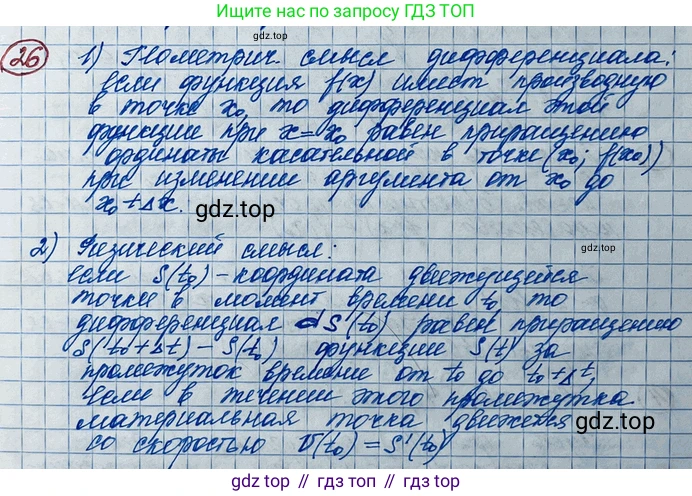 Ищите правильные ответы и решения
по запросу ГДЗ ТОП
26
1) Геометрич. смысл дифференциала:
если функция f(x) имеет производную
в точке x₀, то дифференциал этой
функции при x=x₀ равен приращению
ординаты касательной в точке (x₀; f(x₀))
при изменении аргумента от x₀ до
x₀+Δx.
gdz.top
2) Физический смысл:
если S(t₀) - координата движущейся
точки в момент времени t₀ то
дифференциал dS(t₀) равен приращению
S(t₀+Δt)-S(t₀) функции S(t) за
промежуток времени от t₀ до t₀+Δt,
если в течении этого промежутка
материальная точка движется
со скоростью v(t₀)=S'(t₀)
gdz.top
gdz.top // гдз.топ // гдз топ